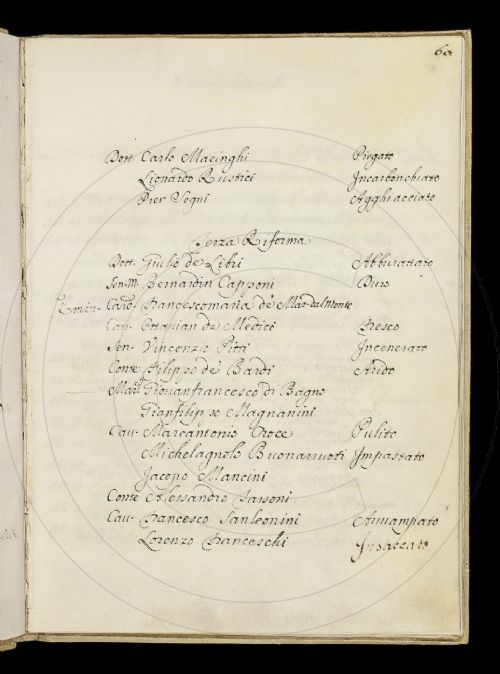 60
Dott. Carlo Macinghi Piegato
Lionardo Rustici Incarbonchiato
Pier Segni Agghiacciato
Terza Riforma
Dott. Giulio de Libri Abburattato
Sen. Bernardin Capponi Duro
Card. Francescomaria de Mar. dal Monte
Cap. Ottavian de Medici Fresco
Sen. Vincenzio Pitti Incenerato
Conte Filippo de Bardi Arido
Mar. Giovanfrancesco di Bagno
Gianfilippo Magnanini
Cav. Marcantonio Croce Pulito
Michelagnolo Buonarruoti Impastato
Jacopo Mancini
Conte Alessandro Sassoni
Cav. Francesco Sanleonini Avvampato
Lorenzo Franceschi Insaccato